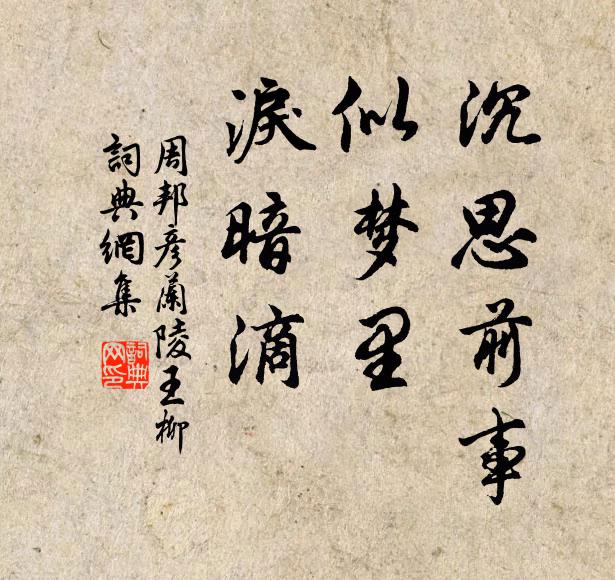 沉思前事
似梦里
淚暗滴
周邦彦蘭陵王柳
詞典網集
詞典网印